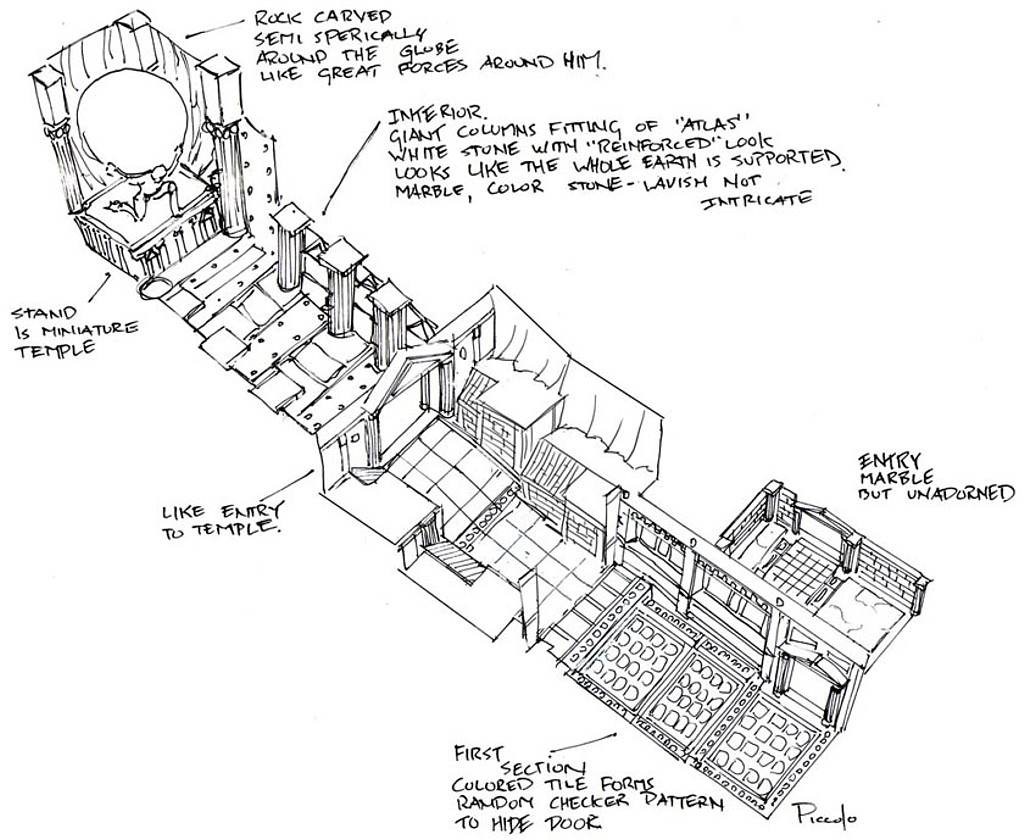 ROCK CARVED
SEMI SPERICALLY
AROUND THE GLOBE
LIKE GREAT FORCES AROUND HIM.
INTERIOR.
GIANT COLUMNS FITTING OF "ATLAS"
WHITE STONE WITH "REINFORCED" LOOK
LOOKS LIKE THE WHOLE EARTH IS SUPPORTED.
MARBLE, COLOR STONE - LAVISH NOT
INTRICATE
STAND
IS MINIATURE
TEMPLE
LIKE ENTRY
TO TEMPLE.
ENTRY
MARBLE
BUT UNADORNED
FIRST
SECTION
COLORED TILE FORMS
RANDOM CHECKER PATTERN
TO HIDE DOOR
Piccolo